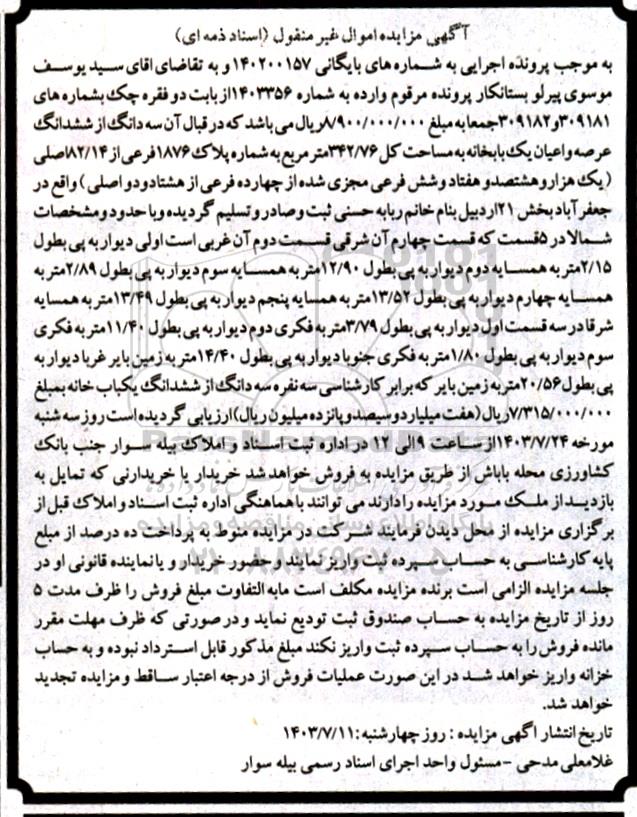 آگهی مزایده اموال غیر منقول (اسناد ذمه ای)
به موجب پرونده اجرایی به شماره های بایگانی ۱۴۰۲۰۰۱۵۷ و به تقاضای اقای سید یوسف
موسوی پیرلو بستانکار پرونده مرقوم وارده به شماره ۱۴۰۳۳۵۶ از بابت دو فقره چک بشماره های
۳۰۹۱۸۱ و ۳۰۹۱۸۲ جمعا به مبلغ ۸/۹۰۰/۰۰۰/۰۰۰ ریال می باشد که در قبال آن سه دانگ از ششدانگ
عرصه و اعیان یک بابخانه به مساحت کل ۳۴۲/۷۶ متر مربع به شماره پلاک ۱۸۷۶ فرعی از ۸۲/۱۴ اصلی
(یک هزار و هشتصد و هفتاد و شش فرعی مجزی شده از چهارده فرعی از هشتاد و دو اصلی) واقع در
جعفر آباد بخش ۲۱ اردبیل بنام خانم ربابه حسنی ثبت و صادر و تسلیم گردیده و با حدود و مشخصات
شمالا در ۵ قسمت که قسمت چهارم آن شرقی قسمت دوم آن غربی است اولی دیوار به پی بطول
۲/۱۵ متر به همسایه دوم دیوار به پی بطول ۱۲/۹۰ متر به همسایه سوم دیوار به پی بطول ۲/۸۹ متر به
همسایه چهارم دیوار به پی بطول ۱۳/۵۲ متر به همسایه پنجم دیوار به پی بطول ۱۳/۴۹ متر به همسایه
شرقا در سه قسمت اول دیوار به پی بطول ۳/۷۹ متر به فکری دوم دیوار به پی بطول ۱۱/۴۰ متر به فکری
سوم دیوار به پی بطول ۱/۸۰ متر به فکری جنوبا دیوار به پی بطول ۱۴/۴۰ متر به زمین بایر غربا دیوار به
پی بطول ۲۰/۵۶ متر به زمین بایر که برابر کارشناسی سه نفره سه دانگ از ششدانگ یکباب خانه بمبلغ
۷/۳۱۵/۰۰۰/۰۰۰ ریال (هفت میلیارد و سیصد و پانزده میلیون ریال) ارزیابی گردیده است روز سه شنبه
مورخه ۱۴۰۳/۷/۲۴ از ساعت ۹ الی ۱۲ در اداره ثبت اسناد و املاک بیله سوار جنب بانک
کشاورزی محله باباش از طریق مزایده به فروش خواهد شد خریدار یا خریدارنی که تمایل به
بازدید از ملک مورد مزایده را دارند می توانند با هماهنگی اداره ثبت اسناد و املاک قبل از
برگزاری مزایده از محل دیدن فرمایند شرکت در مزایده منوط به پرداخت ده درصد از مبلغ
پایه کارشناسی به حساب سپرده ثبت واریز نمایند و حضور خریدار و یا نماینده قانونی او در
جلسه مزایده الزامی است برنده مزایده مکلف است مابه التفاوت مبلغ فروش را ظرف مدت ۵
روز از تاریخ مزایده به حساب صندوق ثبت تودیع نماید و در صورتی که ظرف مهلت مقرر
مانده فروش را به حساب سپرده ثبت واریز نکند مبلغ مذکور قابل استرداد نبوده و به حساب
خزانه واریز خواهد شد در این صورت عملیات فروش از درجه اعتبار ساقط و مزایده تجدید
خواهد شد.
تاریخ انتشار اگهی مزایده : روز چهارشنبه: ۱۴۰۳/۷/۱۱
غلامعلی مدحی - مسئول واحد اجرای اسناد رسمی بیله سوار